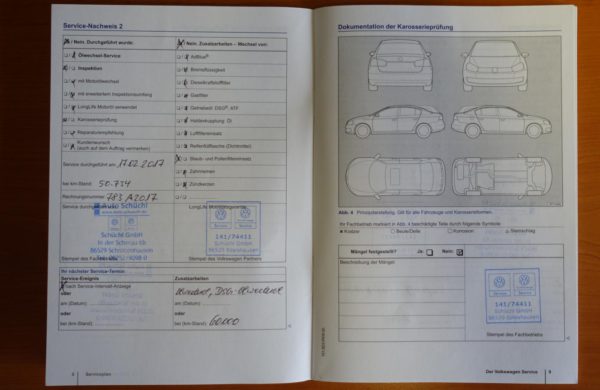 Service-Nachweis 2
Ja / Nein, Durchgeführt wurde:
Ölwechsel-Service
Inspektion
mit Motorölwechsel
mit erweitertem Inspektionsumfang
LongLife Motoröl verwendet
Karosserieprüfung
Reparaturempfehlung
Kundenwunsch
(auch auf dem Auftrag vermerken)
Service durchgeführt am: 17.02.2017
bei km-Stand: 50.734
Rechnungsnummer: 783 A2017
Service durchgeführt
Auto Schüchl
Schüchl GmbH
In der Scherau 1b
86529 Schrobenhausen
Stempel des Fach
/ Nein, Zusatzarbeiten – Wechsel von:
AdBlue®
Bremsflüssigkeit
Dieselkraftstofffilter
Gasfilter
Getriebeöl: DSG®, ATF
Haldexkupplung: Öl
Luftfiltereinsatz
Reifenfüllflasche (Dichtmittel)
Staub- und Pollenfiltereinsatz
Zahnriemen
Zündkerzen
LongLife Mobilitätsgarantie
141/74411
Schüchl GmbH
86529 Schrobenhausen
Stempel des Volkswagen Partners
Ihr nächster Service-Termin:
Service-Ereignis
nach Service-Intervall-Anzeige
oder
am (Datum):
oder
bei (km-Stand):
Zusatzarbeiten
am (Datum):
oder
bei (km-Stand): 60000
8 Serviceplan
Dokumentation der Karosserieprüfung
Abb. 4 Prinzipdarstellung. Gilt für alle Fahrzeuge und Karosserieformen.
Ihr Fachbetrieb markiert in Abb. 4 beschädigte Teile durch folgende Symbole:
Kratzer Beule/Delle Korrosion Steinschlag
Mängel festgestellt? Ja: Nein:
Beschreibung der Mängel:
141/74411
Schüchl GmbH
86529 Schrobenhausen
Stempel des Fachbetriebs
Der Volkswagen Service 9